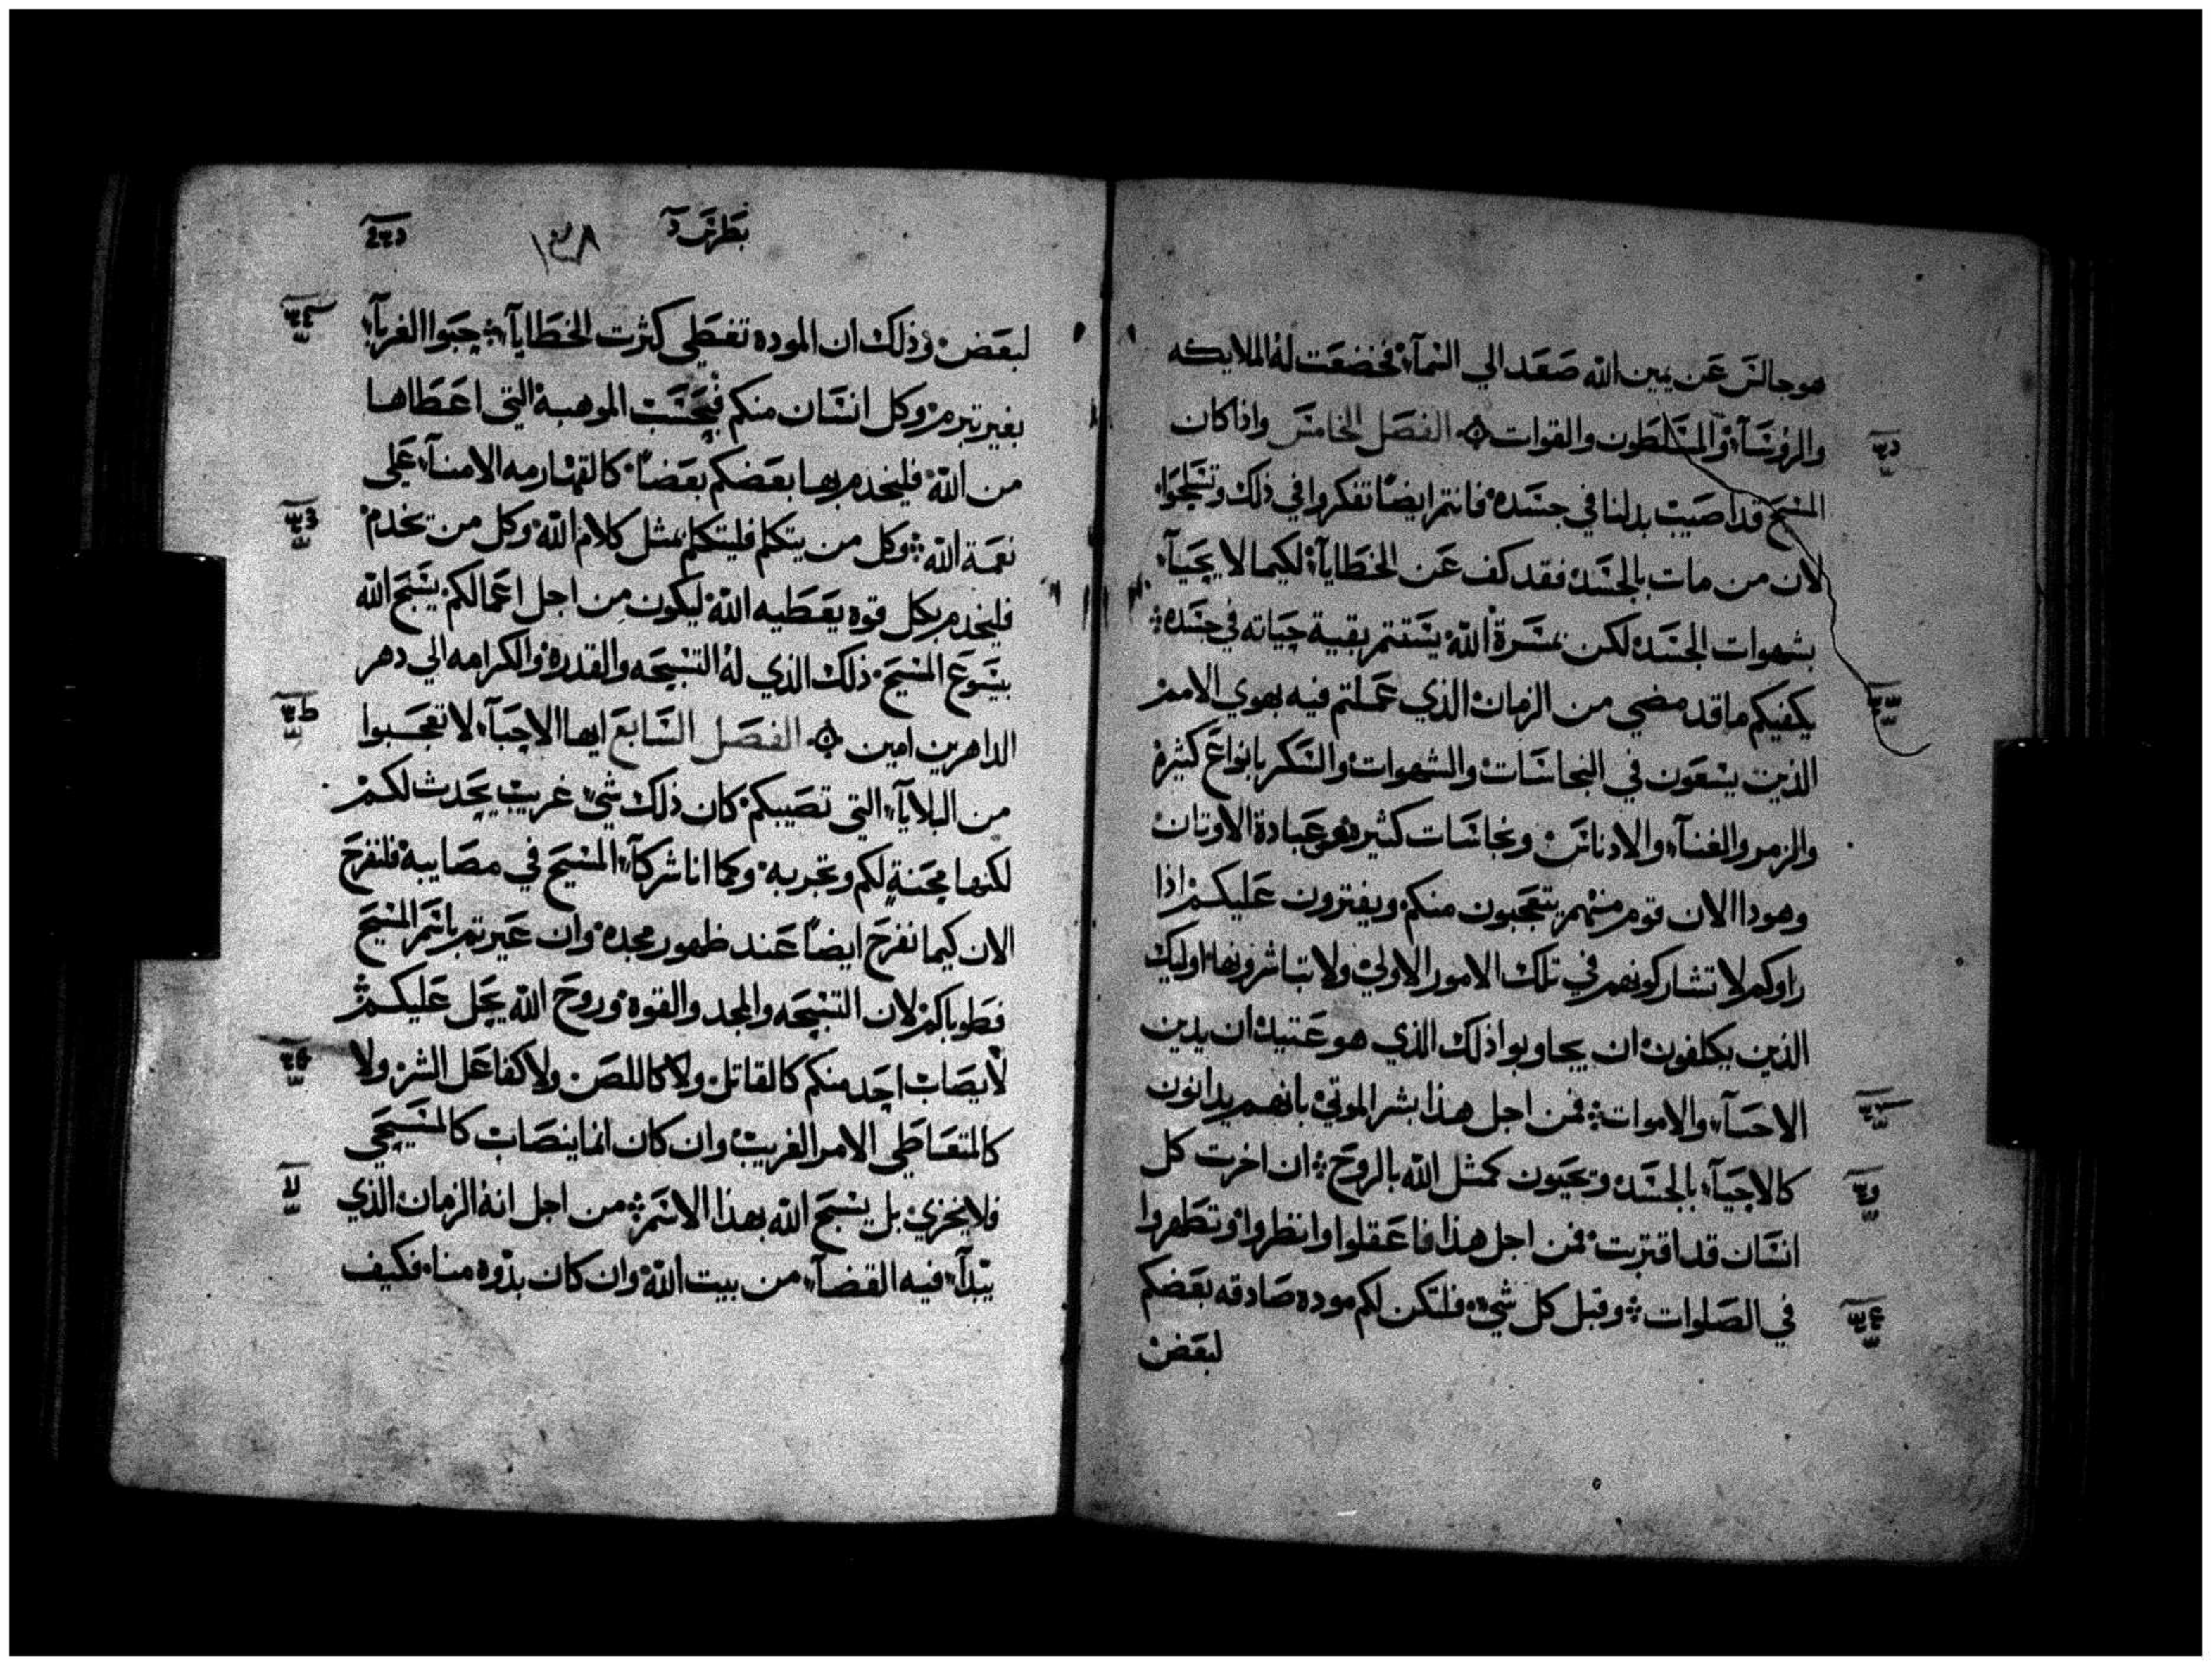 هو جالس عن يمين الله صعد الي السمآء فخضعت له الملايكه
والروسآء والمسلطون والقوات الفصل الخامس واذا كان
المسيح قد اصيب بدلنا في جسده فانتم ايضا تفكروا في ذلك وتسلحوا
لان من مات بالجسد فقد كف عن الخطايآء لكيما لا يحيآء
بشهوات الجسد لكن بمسرة الله يستتم بقية حياته في جسده
يكفيكم ما قد مضي من الزمان الذي عملتم فيه بهوي الامم
الذين يسعون في النجاسات والشهوات والسكر بانواع كثيرة
والزمر والغنآء والادناس ونجاسات كثيره وعبادة الاوتان
وهودا الان قوم منهم يتعجبون منكم ويفترون عليكم اذا
راوكم لا تشاركونهم في تلك الامور الاولي ولا تباشرونها اوليك
الذين يكلفون ان يجاوبوا ذلك الذي هو عتيد ان يدين
الاحيآء والاموات فمن اجل هذا بشر الموتي بانهم يدانون
كالاحيآء بالجسد ويحيون كمثل الله بالروح ان اخرت كل
انسان قد اقتربت فمن اجل هذا فاعقلوا وانظروا وتطهروا
في الصلوات وقبل كل شي فلتكن لكم موده صادقه بعضكم
لبعض
بطرس
لبعض وذلك ان الموده تغطي كثرت الخطايآء حبوا الغربآء
بغير تبرم وكل انسان منكم فبحسب الموهبة التي اعطاها
من الله فليخدم بها بعضكم بعضا كالقهارمه الامنآء علي
نعمة الله وكل من يتكلم فليتكلم بمثل كلام الله وكل من يخدم
فليخدم بكل قوه يعطيه الله ليكون من اجل اعمالكم يسبح الله
بيسوع المسيح ذلك الذي له التسبحه والقدره والكرامه الي دهر
الداهرين امين الفصل السابع ايها الاحبآء لا تعجبوا
من البلايآء التي تصيبكم كان ذلك شي غريب يحدث لكم
لكنها محنة لكم وتجربه وكما انا شركآء المسيح في مصايبه فلنفرح
الان كيما نفرح ايضا عند ظهور مجده وان عيرتم باسم المسيح
فطوباكم لان التسبحه والمجد والقوه وروح الله يحل عليكم
لا يصاب احد منكم كالقاتل ولا كاللص ولا كفاعل الشر ولا
كالمتعاطي الامر الغريب وان كان انما ينصاب كالمسيحي
فلا يخزي بل يسبح الله بهذا الاسم من اجل انه الزمان الذي
يبدآء فيه القضآء من بيت الله وان كان بدوه منا فكيف